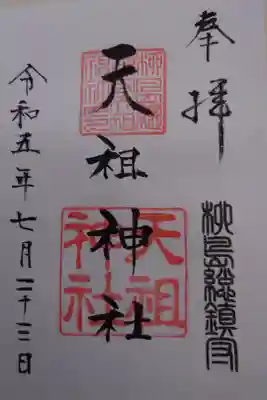 奉拝
柳島總鎮守
天祖神社
天祖
神社
令和五年七月二十三日